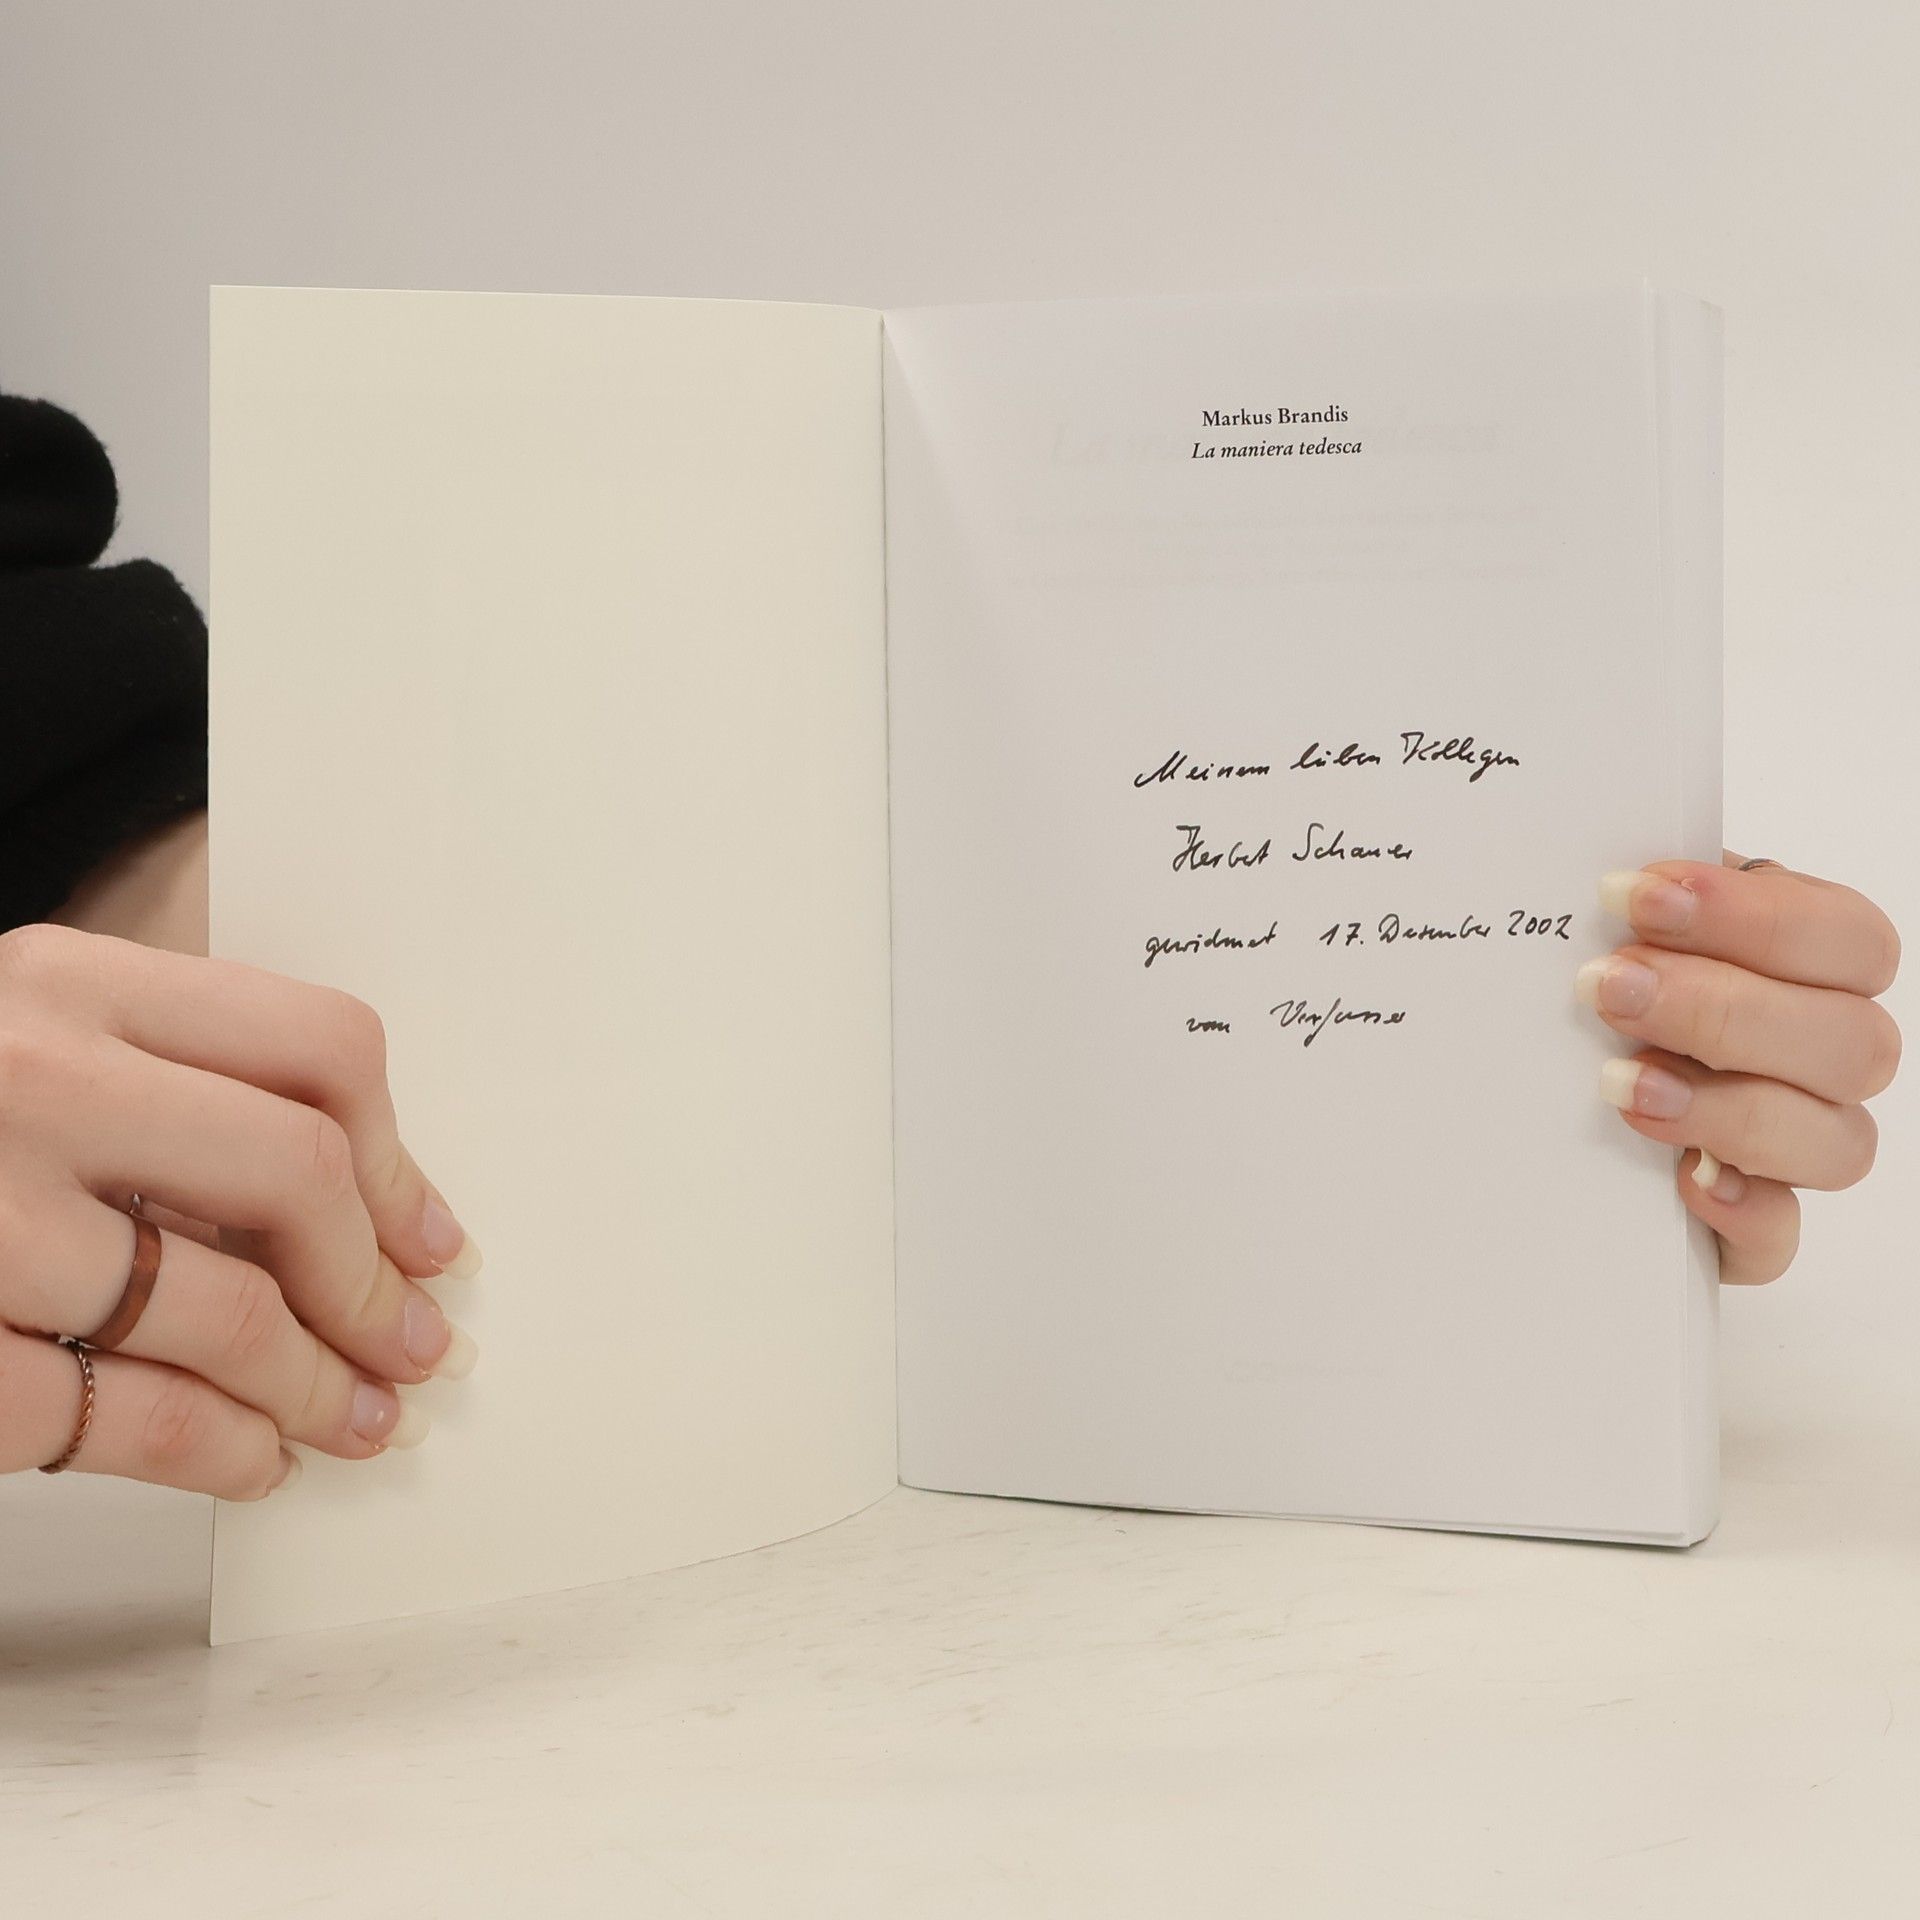 Markus Brandis
La maniera tedesca
Meinem lieben Kollegen
Herbert Schauer
gewidmet 17. Dezember 2002
vom Verfasser